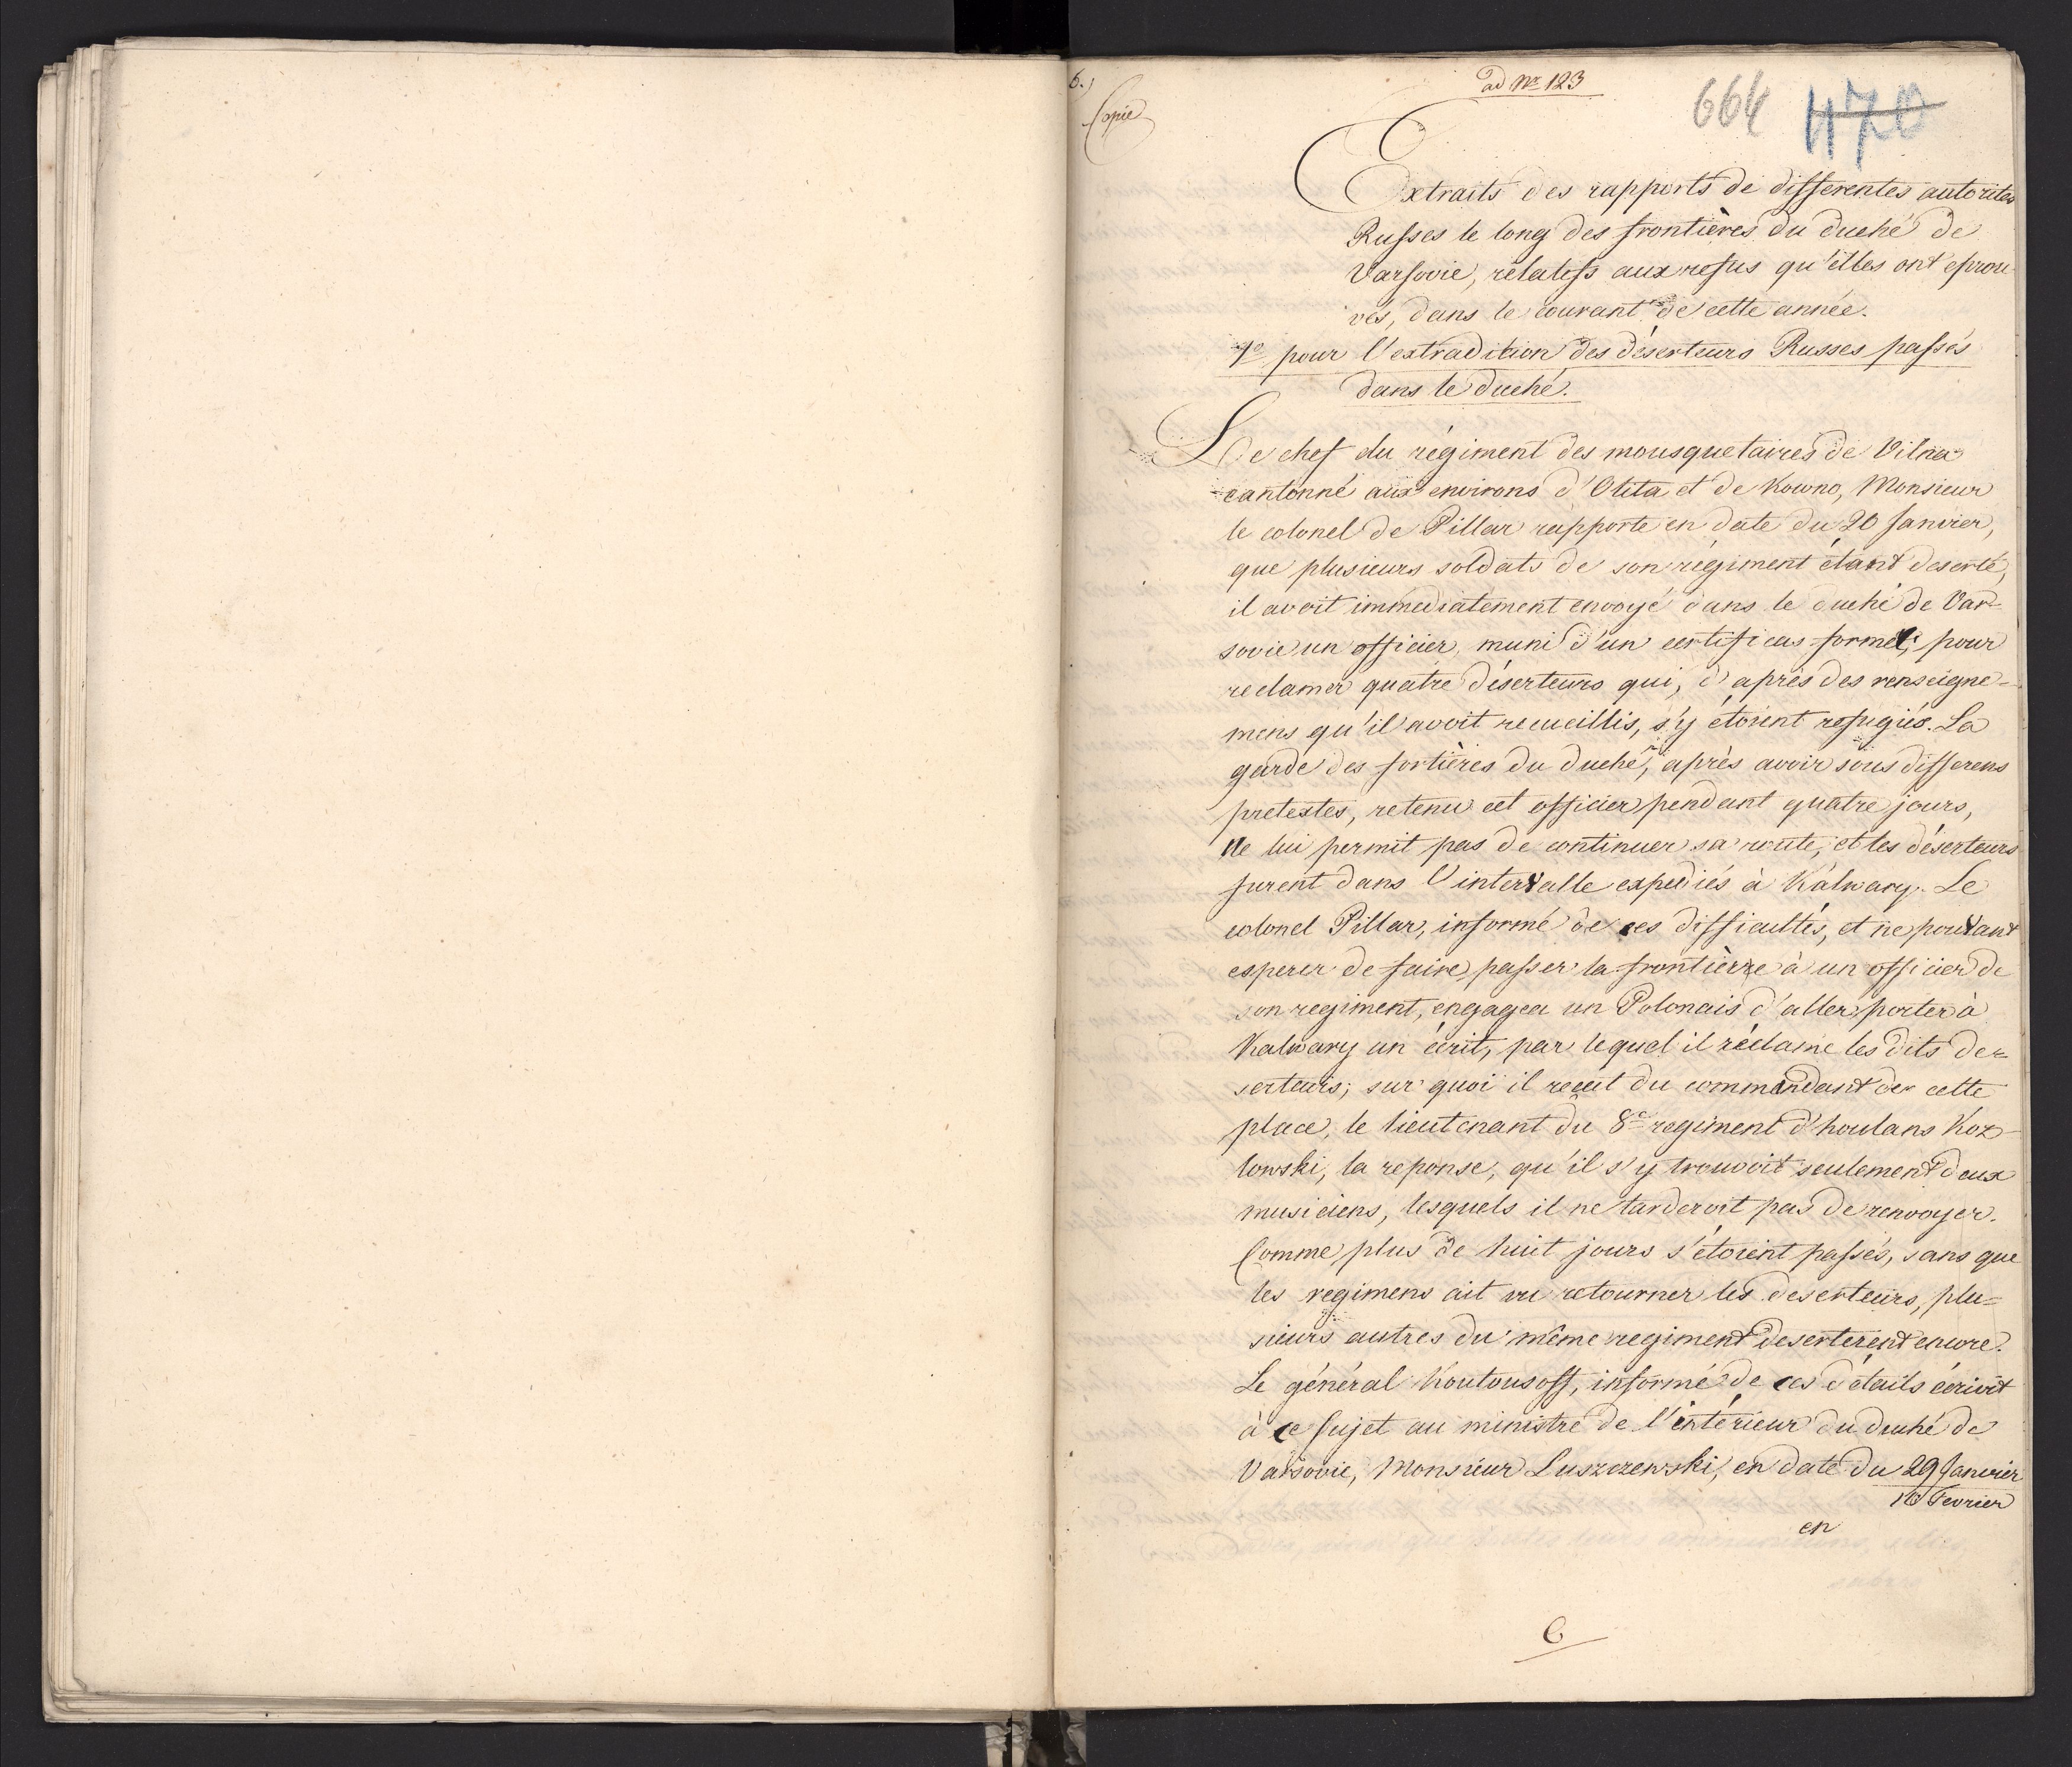 6.)
ad Nr 123
Copie
664 470
Extraits des rapports de differentes autorités
Russes le long des frontières du duché de
Varsovie, rélatifs aux refus qu'elles ont eprou-
vés, dans le courant de cette année.
1o pour l'extradition des déserteurs Russes passés
dans le duché.
Le chef du régiment des mousquetaires de Vilna
cantonné aux environs d'Olita et de Kowno, Monsieur
le colonel de Pillar rapporte en date du 20 Janvier,
que plusieurs soldats de son régiment étant deserté,
il avoit immediatement envoyé dans le duché de Var-
sovie un officier, muni d'un certificas formel, pour
reclamer quatre déserteurs qui, d'après des renseigne-
mens qu'il avoit recueillis, s'y étoient refugiés. La
garde des fortières du duché, après avoir sous differens
pretextes, retenu cet officier pendant quatre jours,
ne lui permit pas de continuer sa route, et les déserteurs
furent dans l'intervalle expediés à Kalwary. Le
colonel Pillar, informé de ces difficultés, et ne pouvant
esperer de faire passer la frontière à un officier de
son regiment, engagea un Polonais d'aller porter à
Kalwary un écrit, par lequel il réclame les dits de-
serteurs; sur quoi il recut du commandant de cette
place, le lieutenant du 8e regiment d'houlans Koz-
lowski, la reponse, qu'il s'y trouvoit seulement deux
musiciens, lesquels il ne tarderoit pas de renvoyer.
Comme plus de huit jours s'étoient passés, sans que
les regimens ait vu retourner les deserteurs, plu-
sieurs autres du même regiment deserterent encore.
Le général Koutousoff, informé de ces détails écrivit
à ce sujet au ministre de l'intérieur du duché de
Varsovie, Monsieur Luszczewski, en date du 29 Janvier
10 Fevrier
en